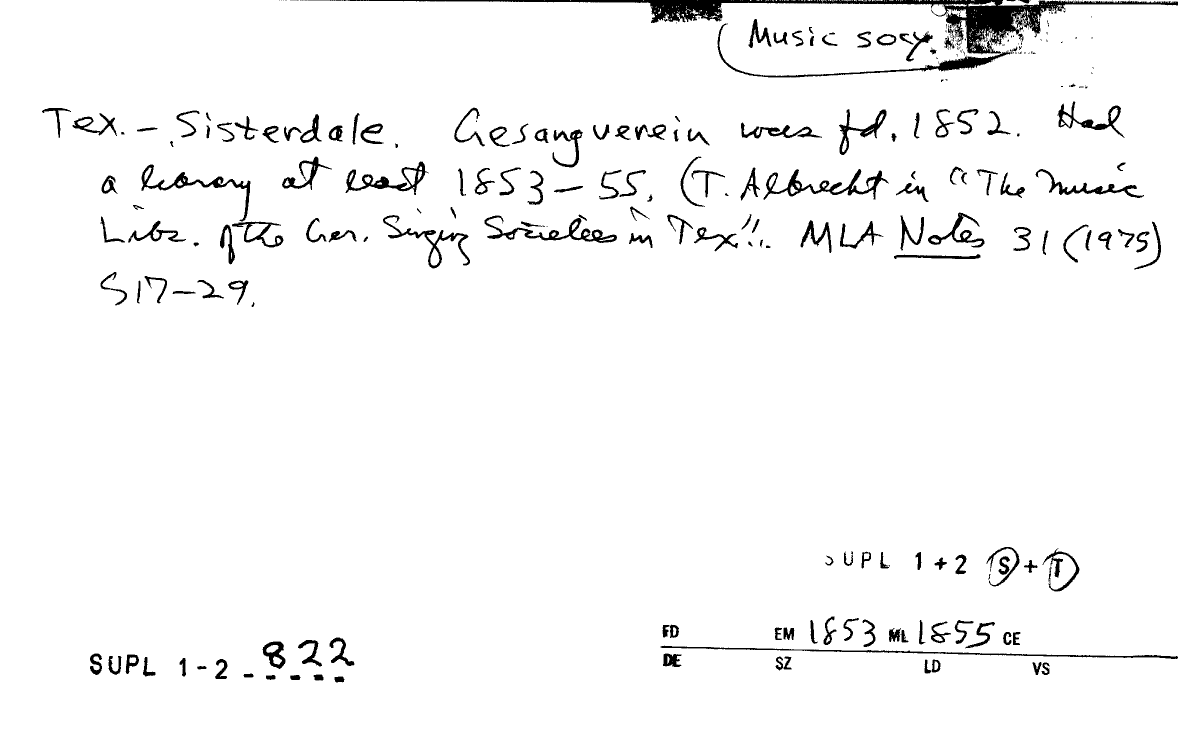 Music socy.
Tex. – Sisterdale. Gesangverein was fd. 1852. Had
a library at least 1853–55. (T. Albrecht in "The Music
Libs. of the Ger. Singing Societies in Tex". MLA Notes 31 (1975)
517–29.
SUPL 1+2 S+T
FD EM 1853 ML 1855 CE
DE SZ LD VS
SUPL 1-2 822